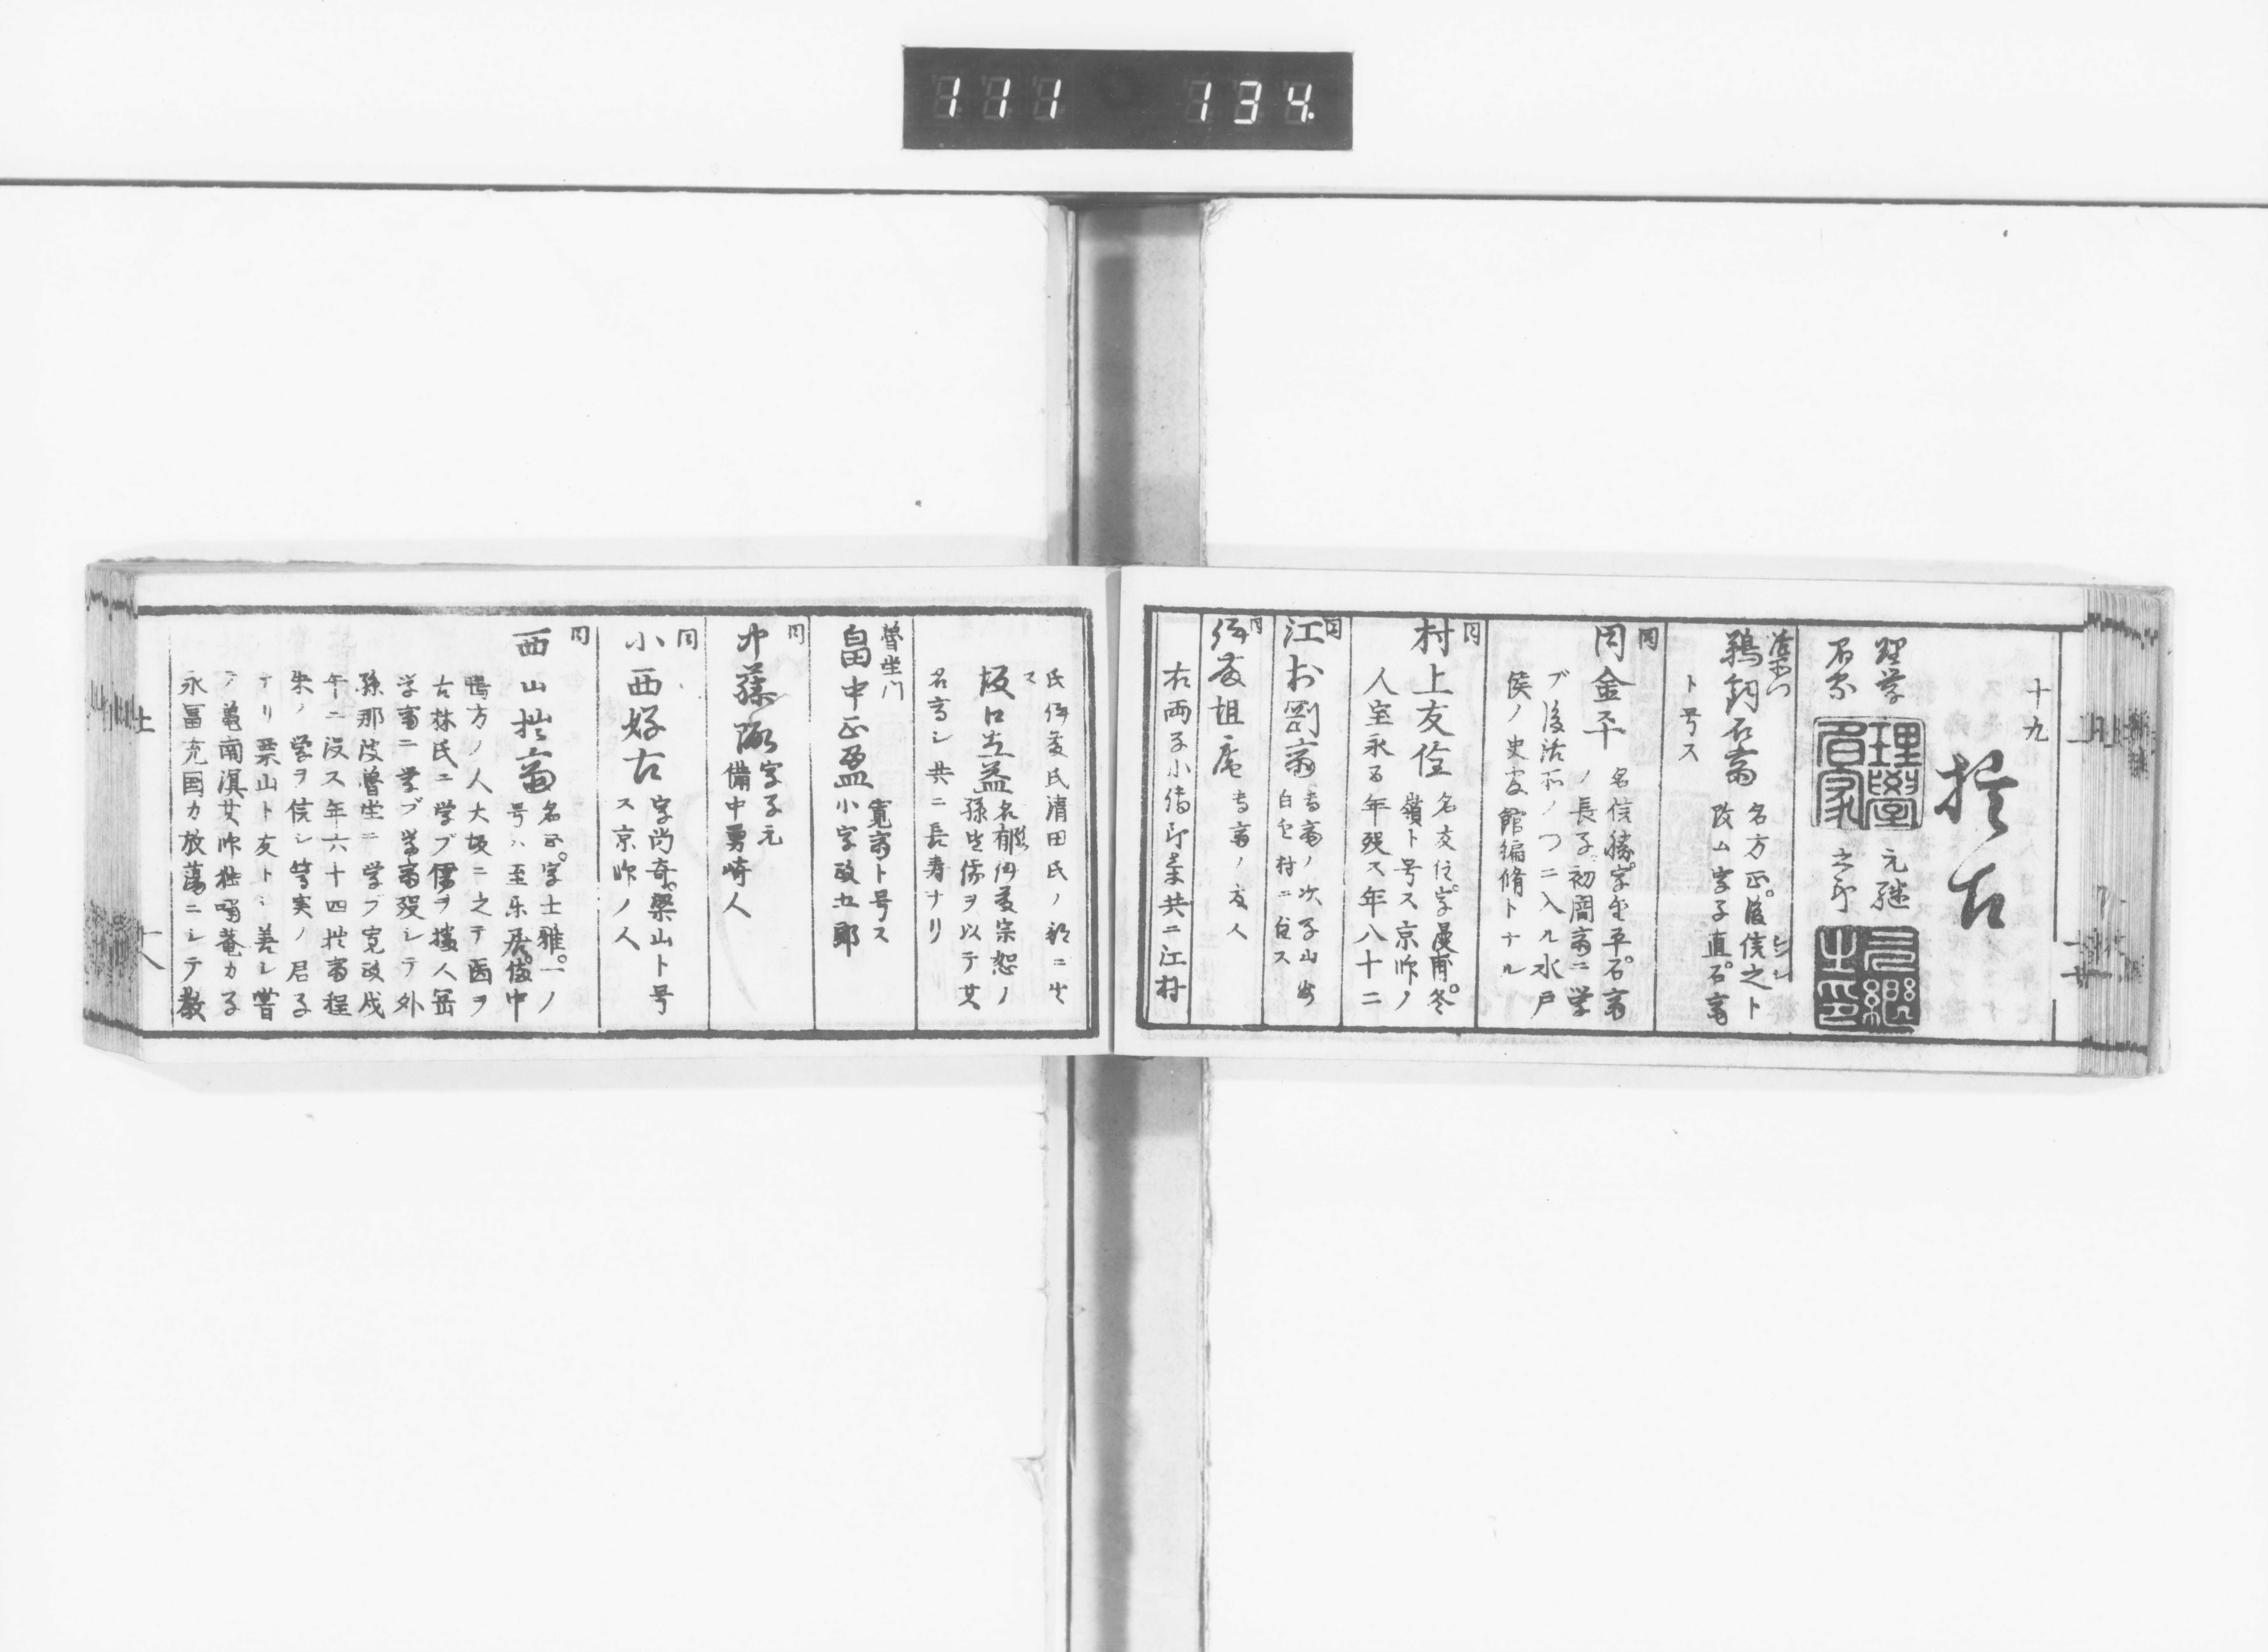 111 134
十九
理学 元継
名家 之印
理學
名家
元継
之印
鵜飼石斎 名方正。後信之ト
改ム字子直。石斎
ト号ス
同
同金平 名信勝。字金平。石斎
ノ長子初闇斎ニ学
ブ後活所ノ門ニ入ル水戸
侯ノ史官館編脩トナル
同
村上友佺 名友佺。字漫甫。冬
嶺ト号ス京師ノ
人宝永四年歿ス年八十二
同
江村剛斎 専斎ノ次子山城
白毛村ニ
同
專斎ノ友人
右両子小傳印業共ニ江村
氏伊藤氏清田氏ノ部ニ出
ス
坂口立益 名郁伊藤宗恕ノ
孫皆儒ヲ以テ其
名高シ共ニ長寿ナリ
曽生門
畠中正盈 寛斎ト号ス
小字政五郎
同
字子元
備中勇崎人
同
小西好古 字尚奇。梁山ト号
ス京師ノ人
同
西山拙斎 名正。字士雅。一ノ
号ハ至楽居。備中
鴨方ノ人大坂ニ之テ医ヲ
古林氏ニ学ブ儒ヲ播人岡
学斎ニ学ブ学斎歿シテ外
孫那波曽生ニ学ブ寛政戊
午ニ没ス年六十四拙斎程
朱ノ学ヲ信シ篤実ノ君子
ナリ栗山ト友トシ善シ嘗
テ亀南溟其師独嘯菴カ子
永冨充国カ放蕩ニシテ教
上 十八